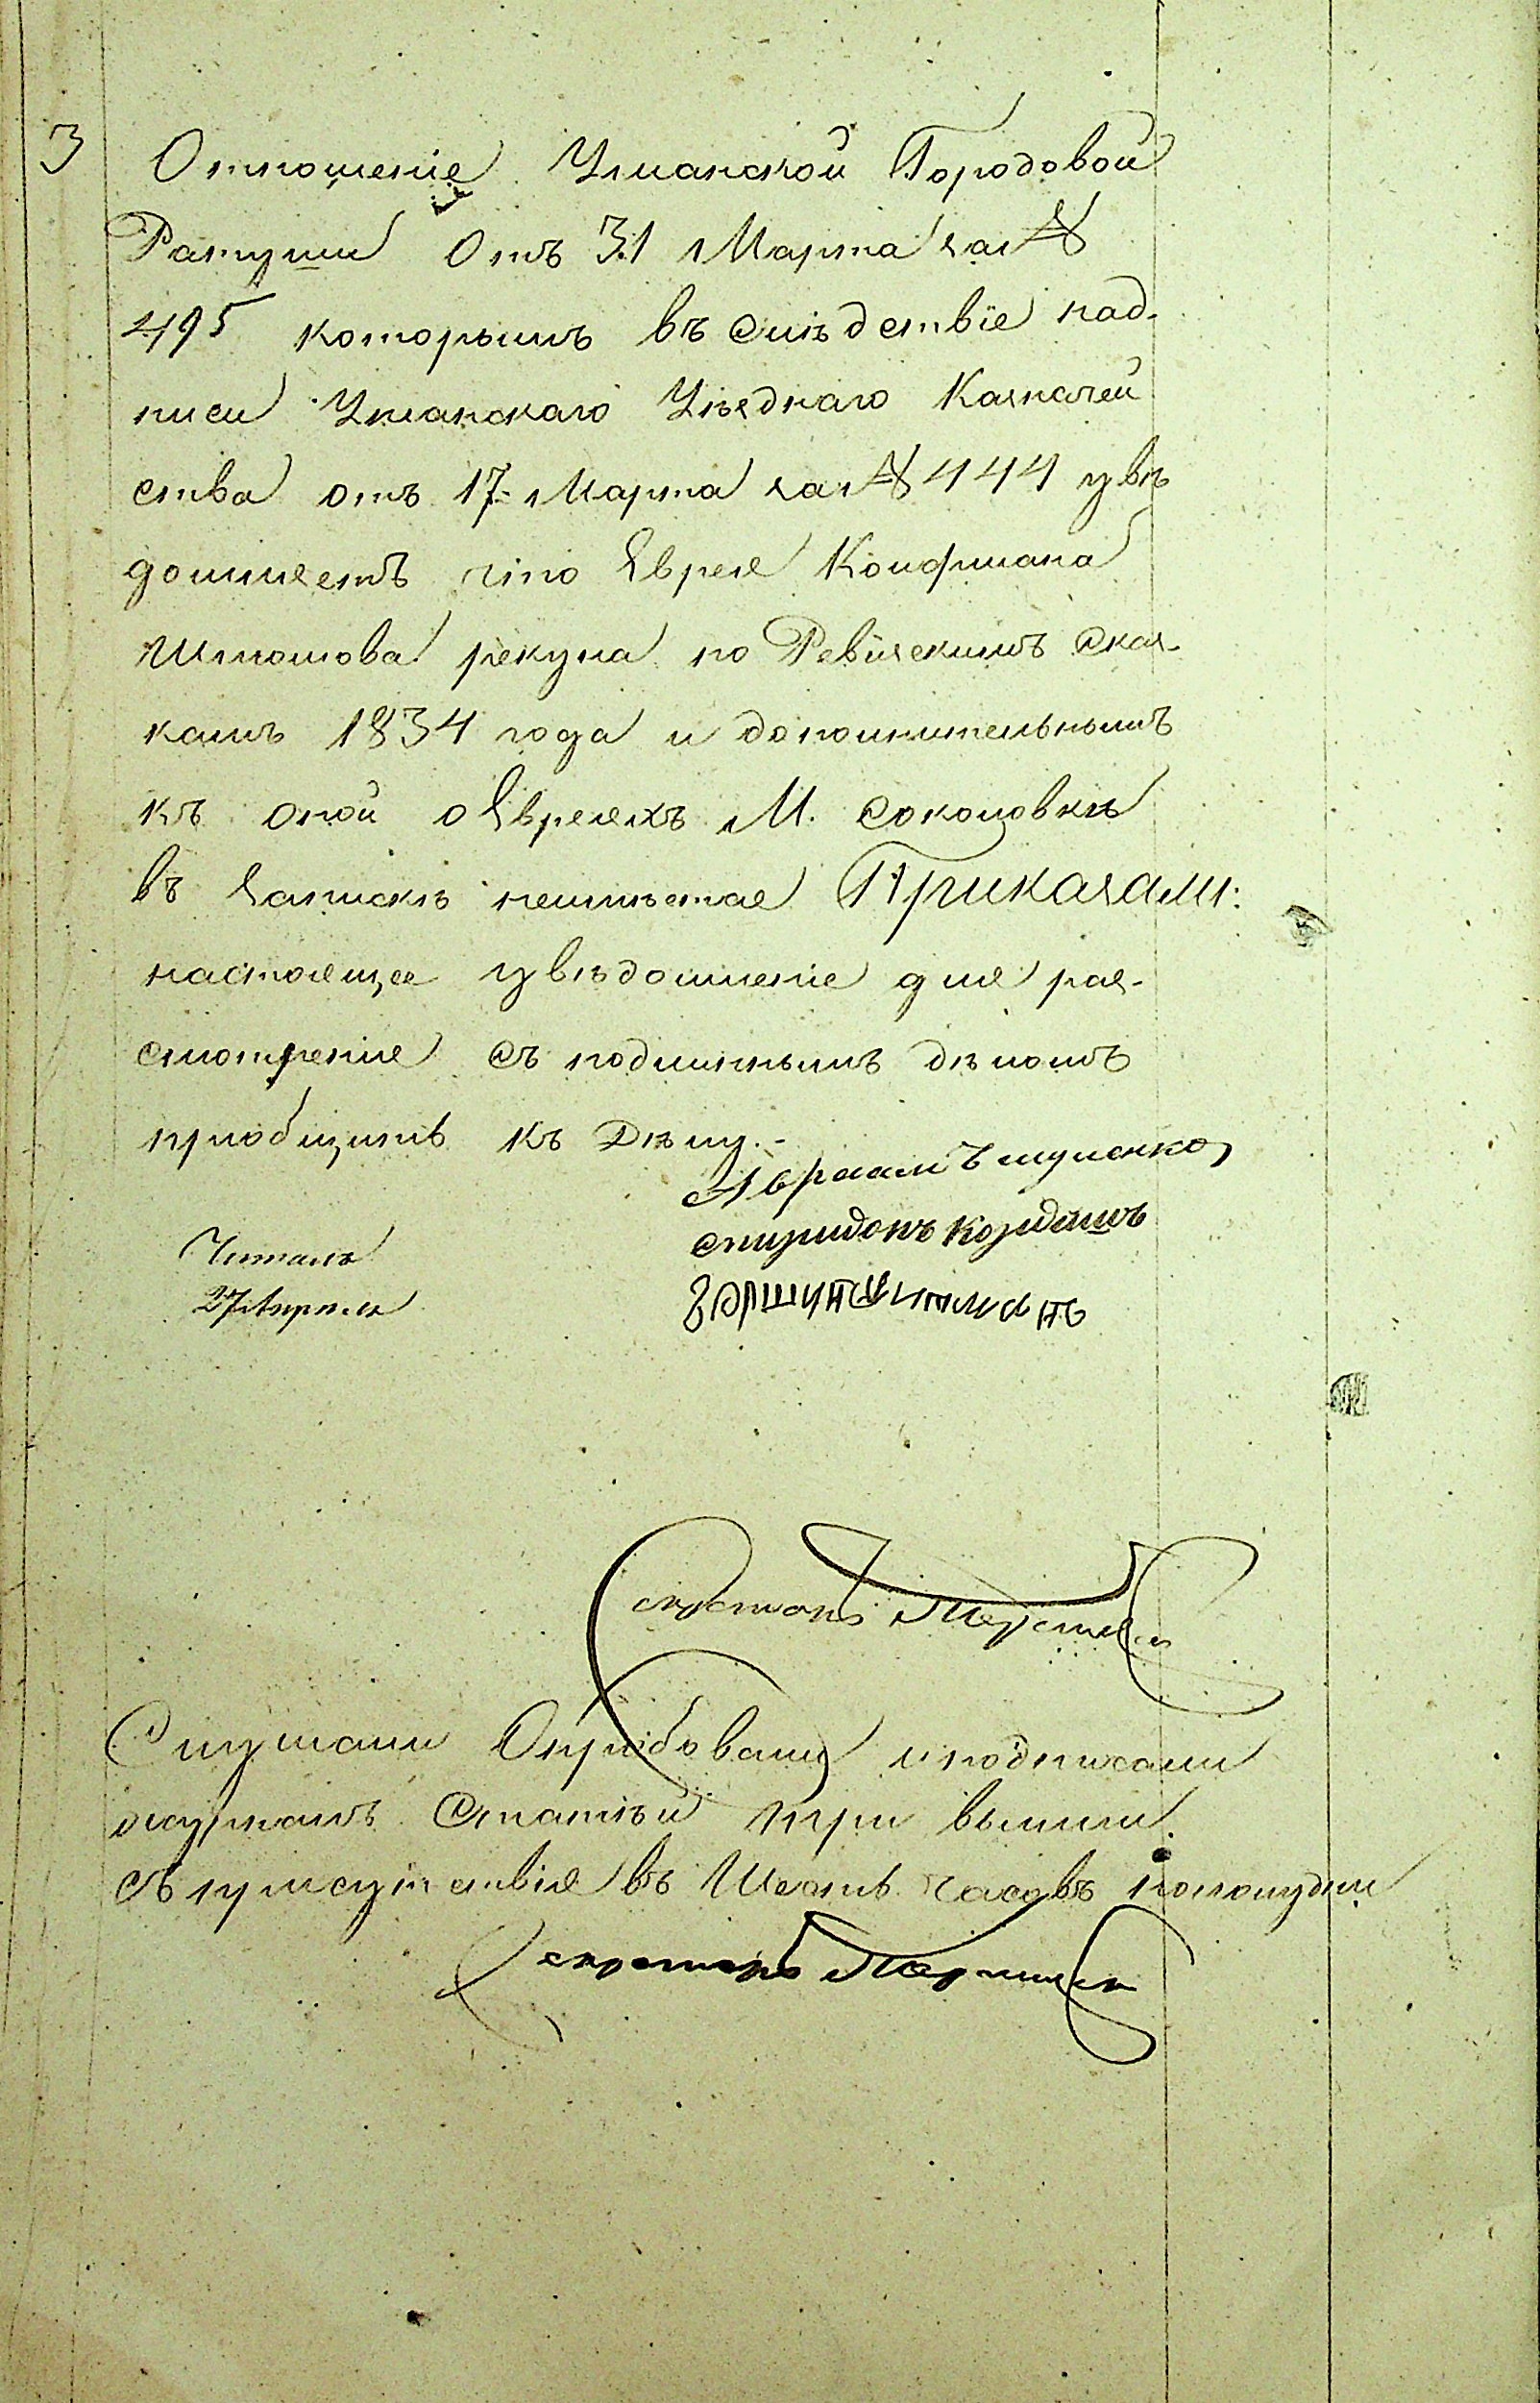 3 Отношеніе Уманской Городовой
Ратуши Отъ 31 Марта за №
495 которымъ въ слѣдствіе над-
писи Уманскаго Уѣзднаго Казначей
ства отъ 17 Марта за № 444 увѣ
домляетъ что Еврея Койфмана
рекуна по Ревизскимъ Сказ-
камъ 1834 года и дополнительнымъ
къ оной о Евреяхъ М. Соколовки
въ Запискѣ неимѣется Приказали:
настоящее увѣдомленіе для раз-
смотренія съ подлиннымъ дѣломъ
пріобщить къ Дѣлу.-
Авраамъ
спиридонъ
Читалъ
Секретарь
Слушали и подписали
Статьи три вышли
съ присутствія въ Шесть часовъ пополудни
Секретарь